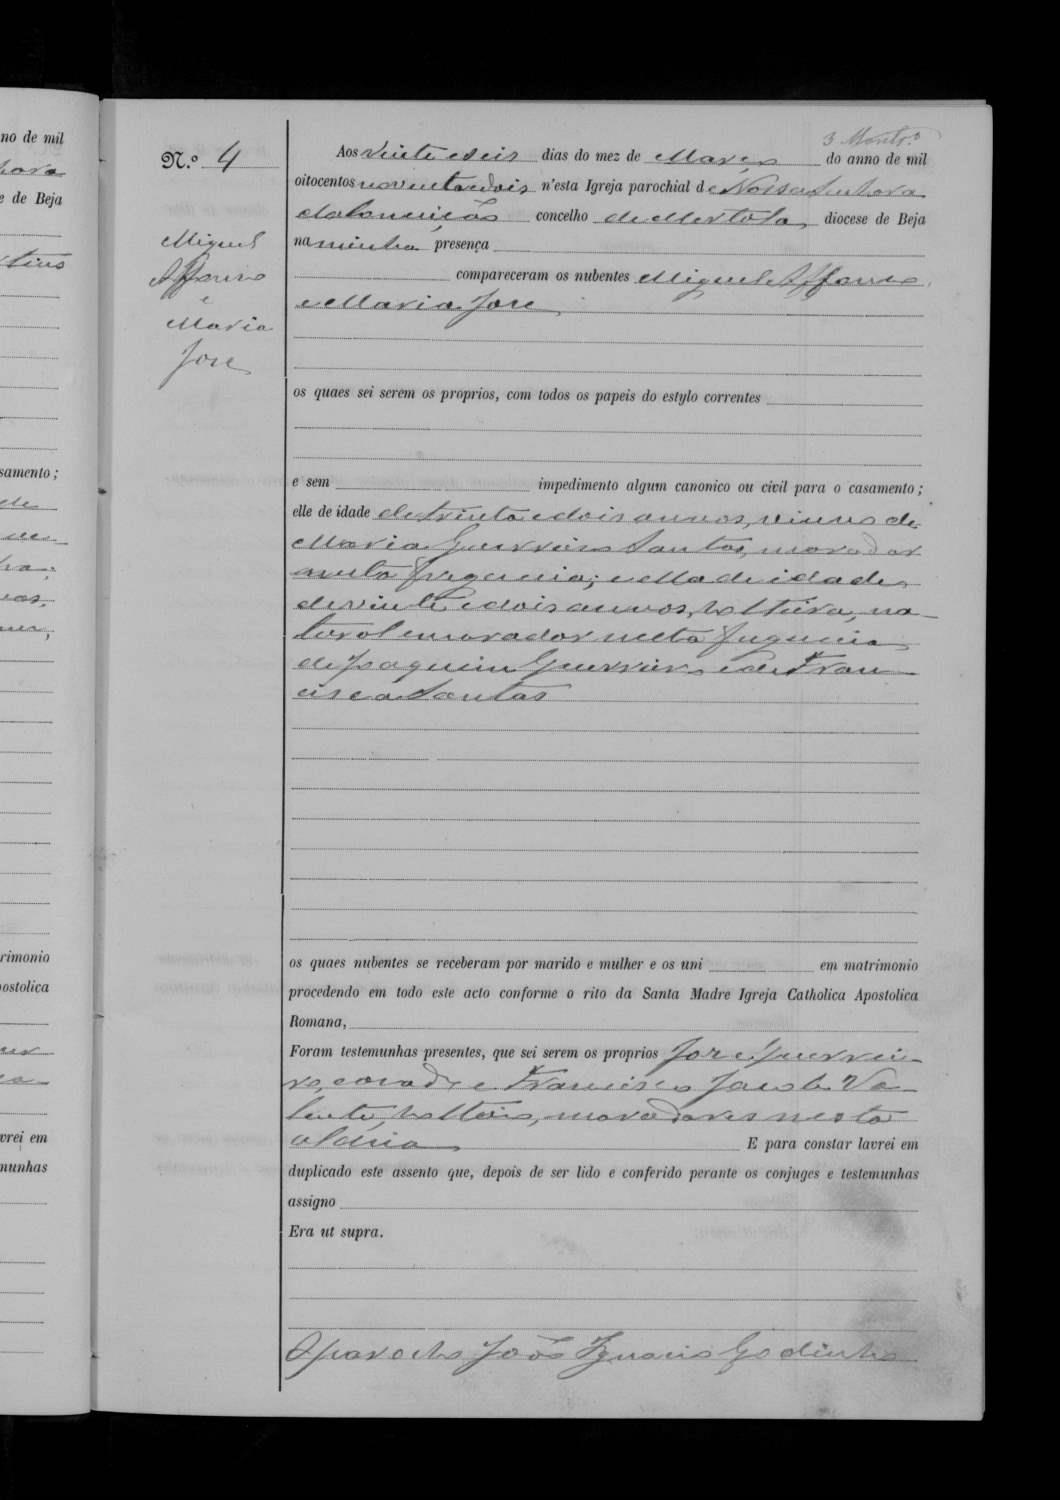 no de mil
hora
e de Beja
samento;
rimonio
postolica
vrei em
munhas
3 Montr.º
N.º 4
Miguel
Affonso
e
Maria
Jose
Aos vinte e seis dias do mez de Março do anno de mil
oitocentos noventa e dois n'esta Igreja parochial de Nossa Senhora
da Conceição concelho de Mertola, diocese de Beja
na minha presença
compareceram os nubentes Miguel Affonso
e Maria Jose
os quaes sei serem os proprios, com todos os papeis do estylo correntes
e sem impedimento algum canonico ou civil para o casamento;
elle de idade de trinta e dois annos, viuvo de
Maria Guerreiro Santos, morador
nesta freguesia; e ella de idade
de vinte e dois annos, solteira, na-
tural e morador nesta freguesia
de Joaquim Guerreiro e de Fran
cisca Santos
os quaes nubentes se receberam por marido e mulher e os uni em matrimonio
procedendo em todo este acto conforme o rito da Santa Madre Igreja Catholica Apostolica
Romana,
Foram testemunhas presentes, que sei serem os proprios Jose Guerrei-
ro, casado e Francisco Jacob Va-
lente, solteiro, moradores nesta
aldeia E para constar lavrei em
duplicado este assento que, depois de ser lido e conferido perante os conjuges e testemunhas
assigno
Era ut supra.
O parocho João Ignacio Godinho